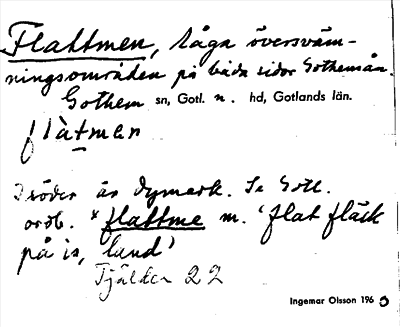 Flattmen, låga översväm-
ningsområden på båda sidor Gothemån.
Gothem sn, Gotl. n. hd, Gotlands län.
flàtmen
I söder är dymark. Se Gotl.
ordb. *flattme m. 'flat fläck
på is, land'
Fjälder 22
Ingemar Olsson 196